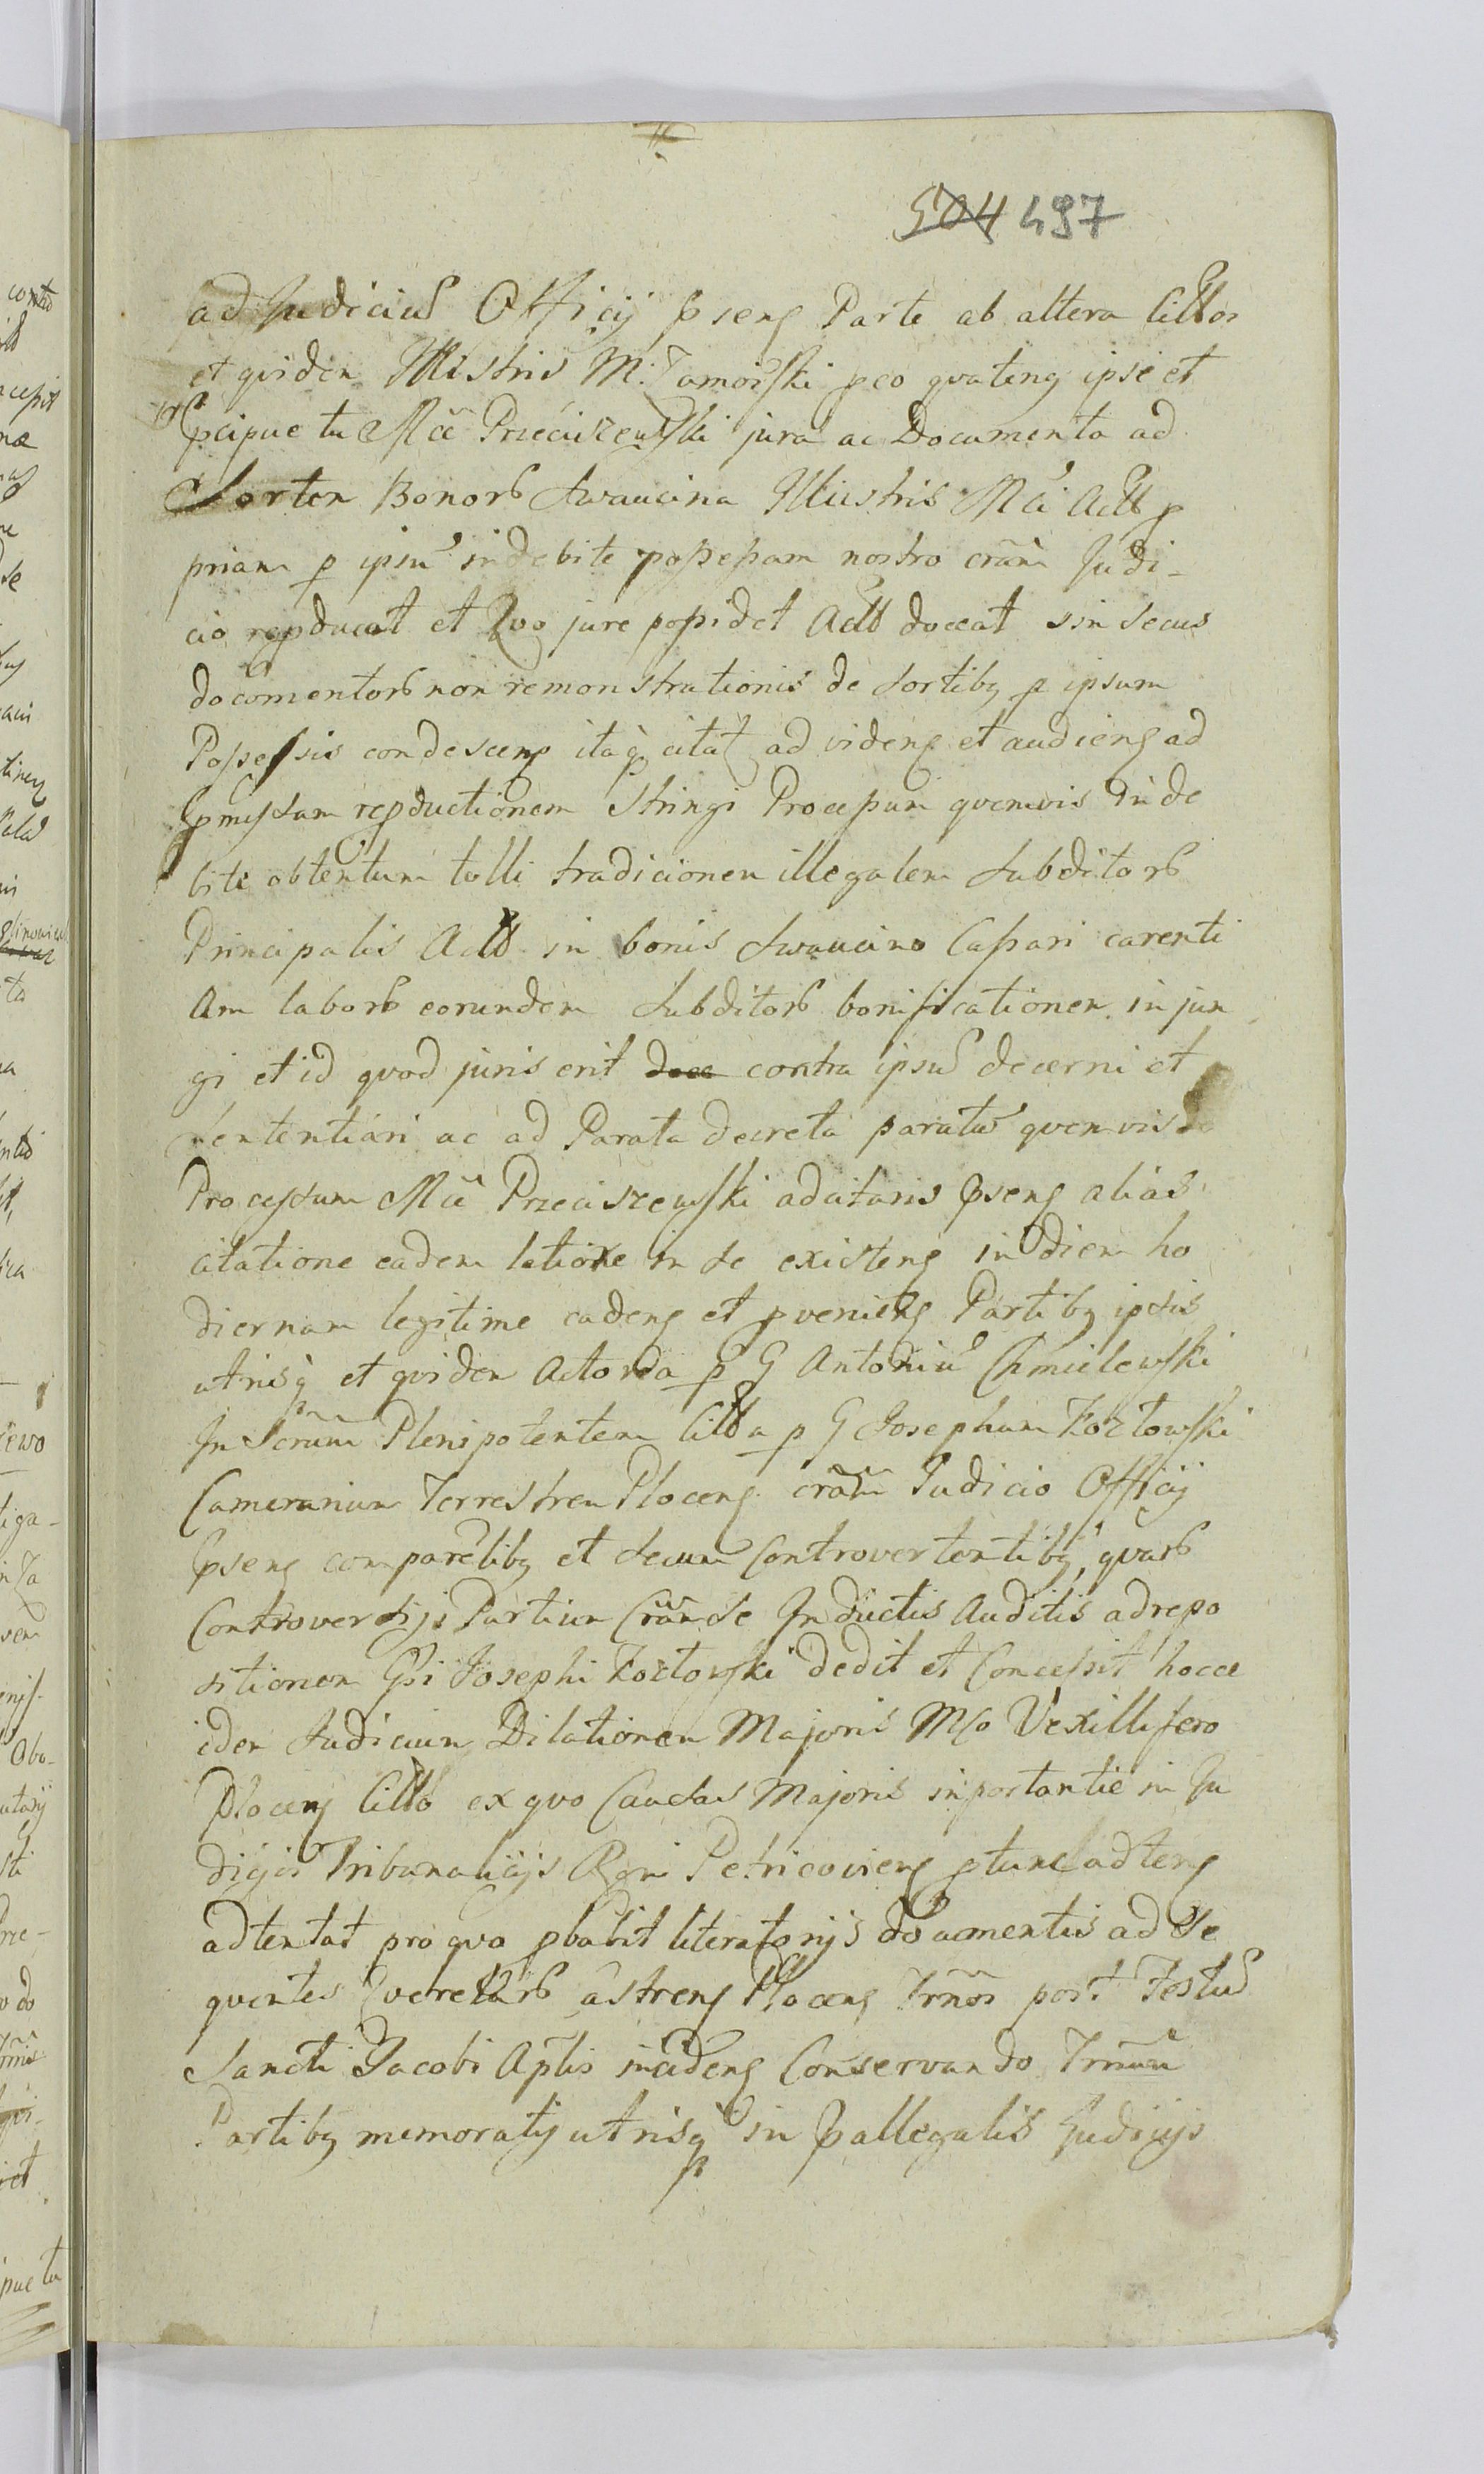 504 497
ad Judiciū Officij pseng Parte ab altera Cittos
et qviden Illistris M: Zamoiski peo qvateng ipse et
pcipue tu Mce Przeciszewski jura ac Documenta ad
Sorten Bonorb Swaucina Illustris Mci Actt p
priam p ipsū indebite possessam nostro cram Judi-
cio repducat et Qvo jure possidet Actt doceat sin secus
documentorb non remonstrationis de sortibg p ipsum
Possessis condesceng itaq citat ad videng et audieng ad
pmissam repductionem stringi Processum qvemvis inde
bite obtentum tolli tradicionen illegalem Subditorb
Principalis Actt in bonis Swaucino Cassari carenti
am laborb eorundem Subditorb bonificationen injun
gi et id qvod juris erit contra ipsū decerni et
sententiari ac ad Parata decreta paratū qvenvis
Processum Mce Przeciszewski adcitaris pseng alias
citatione eadem latione in se existeng in diem ho
diernam legitime cadeng et pvenieng Partibg ipsis
utrisq et qviden Actorea p G Antoniū Chmielewski
In Scrūm Plenipotentem Citta p G Josephum Kozłowski
Camerarium Terrestrem Ploceng crām Judicio Officij
pseng comparētibg et secum Controvertentibg, qvarb
Controversijs Partium Crām se Inductis Auditis adrepo
sitionem Gsi Josephi Kozłowski dedit et Concessit hocce
iden Judicium Dilationem Majoris Mco Vexillifero
Ploceng Citto ex qvo Causas Majoris inportantie in Ju
dicijs Tribunalicijs Rgni Petricovieng ptunc adteng
adtentat pro qvo pbabit literatorijs documentis ad Se
qventes Qverelarb castreng Ploceng Trmos post Festū
Sancti Jacobi Aptis incideng Conservando Trmum
Partibg memoratis utrisq in pallegatis Judicijs